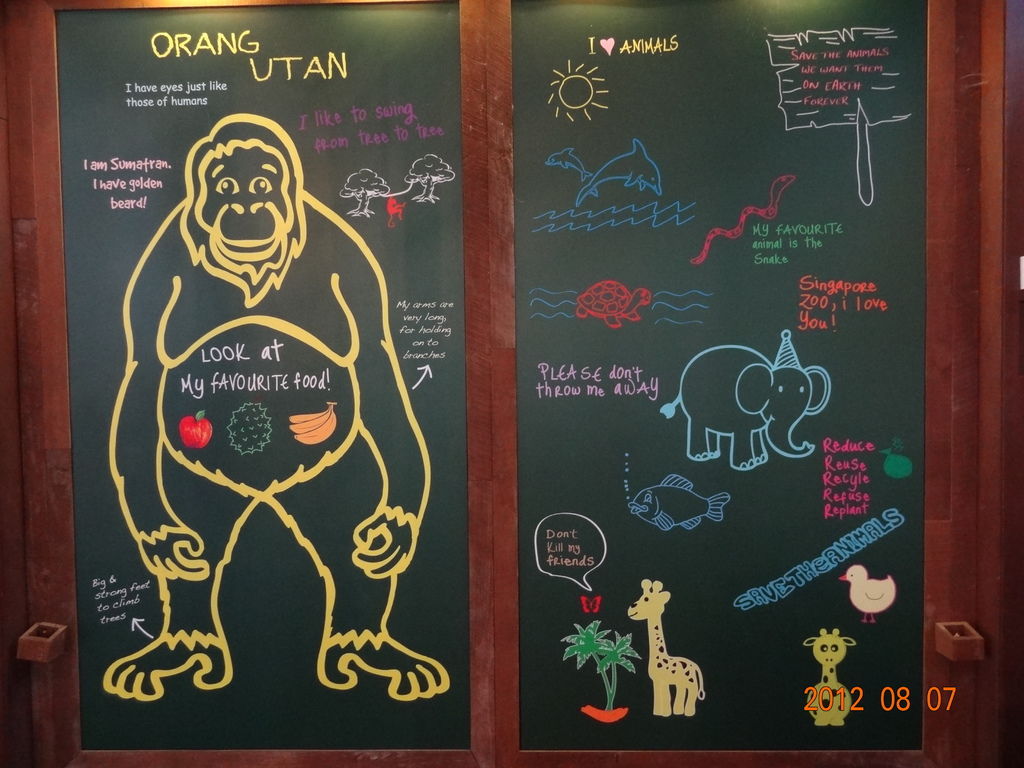 ORANG
UTAN
I have eyes just like
those of humans
I like to swing
from tree to tree
I am Sumatran.
I have golden
beard!
My arms are
very long,
for holding
on to
branches
LOOK at
My FAVOURITE food!
Big &
strong feet
to climb
trees
I ANIMALS
SAVE THE ANIMALS
WE WANT THEM
ON EARTH
FOREVER
MY FAVOURITE
animal is the
Snake
Singapore
ZOO, i love
You!
PLEASE don't
throw me away
Reduce
Reuse
Recycle
Refuse
Replant
Don't
Kill my
friends
SAVE THE ANIMALS
2012 08 07